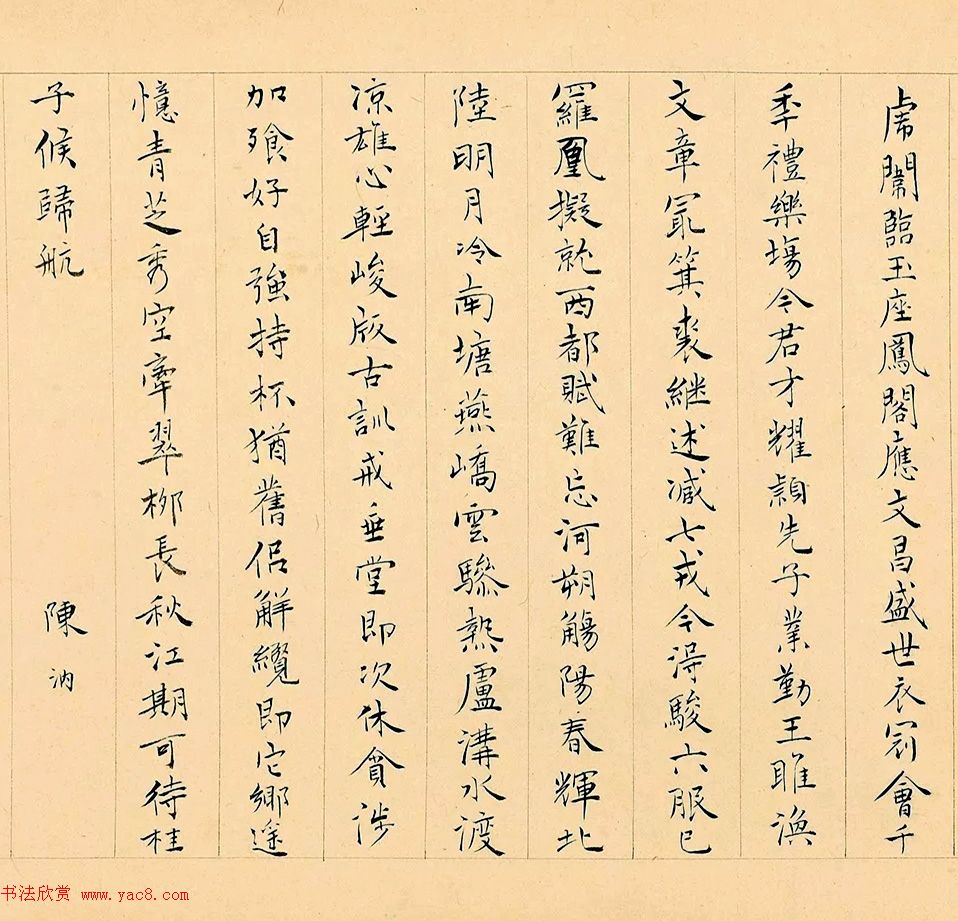 虎闈臨玉座鳳閣應文昌盛世衣冠會千
季禮樂場令君才耀穎先子業勤王雎渙
文章冣箕裘継述減七戎今淂駿六服已
羅凰擬就西都賦難忘河朔觴陽春輝北
陸明月冷南塘燕嶠雲驂熱盧溝水渡
凉雄心輕峻版古訓戒垂堂即次休貪涉
加飱好自強持杯猶舊侣解纜即它鄉途
憶青芝秀空牽翠柳長秋江期可待桂
子候歸航
陳汭
书法欣赏 www.yac8.com